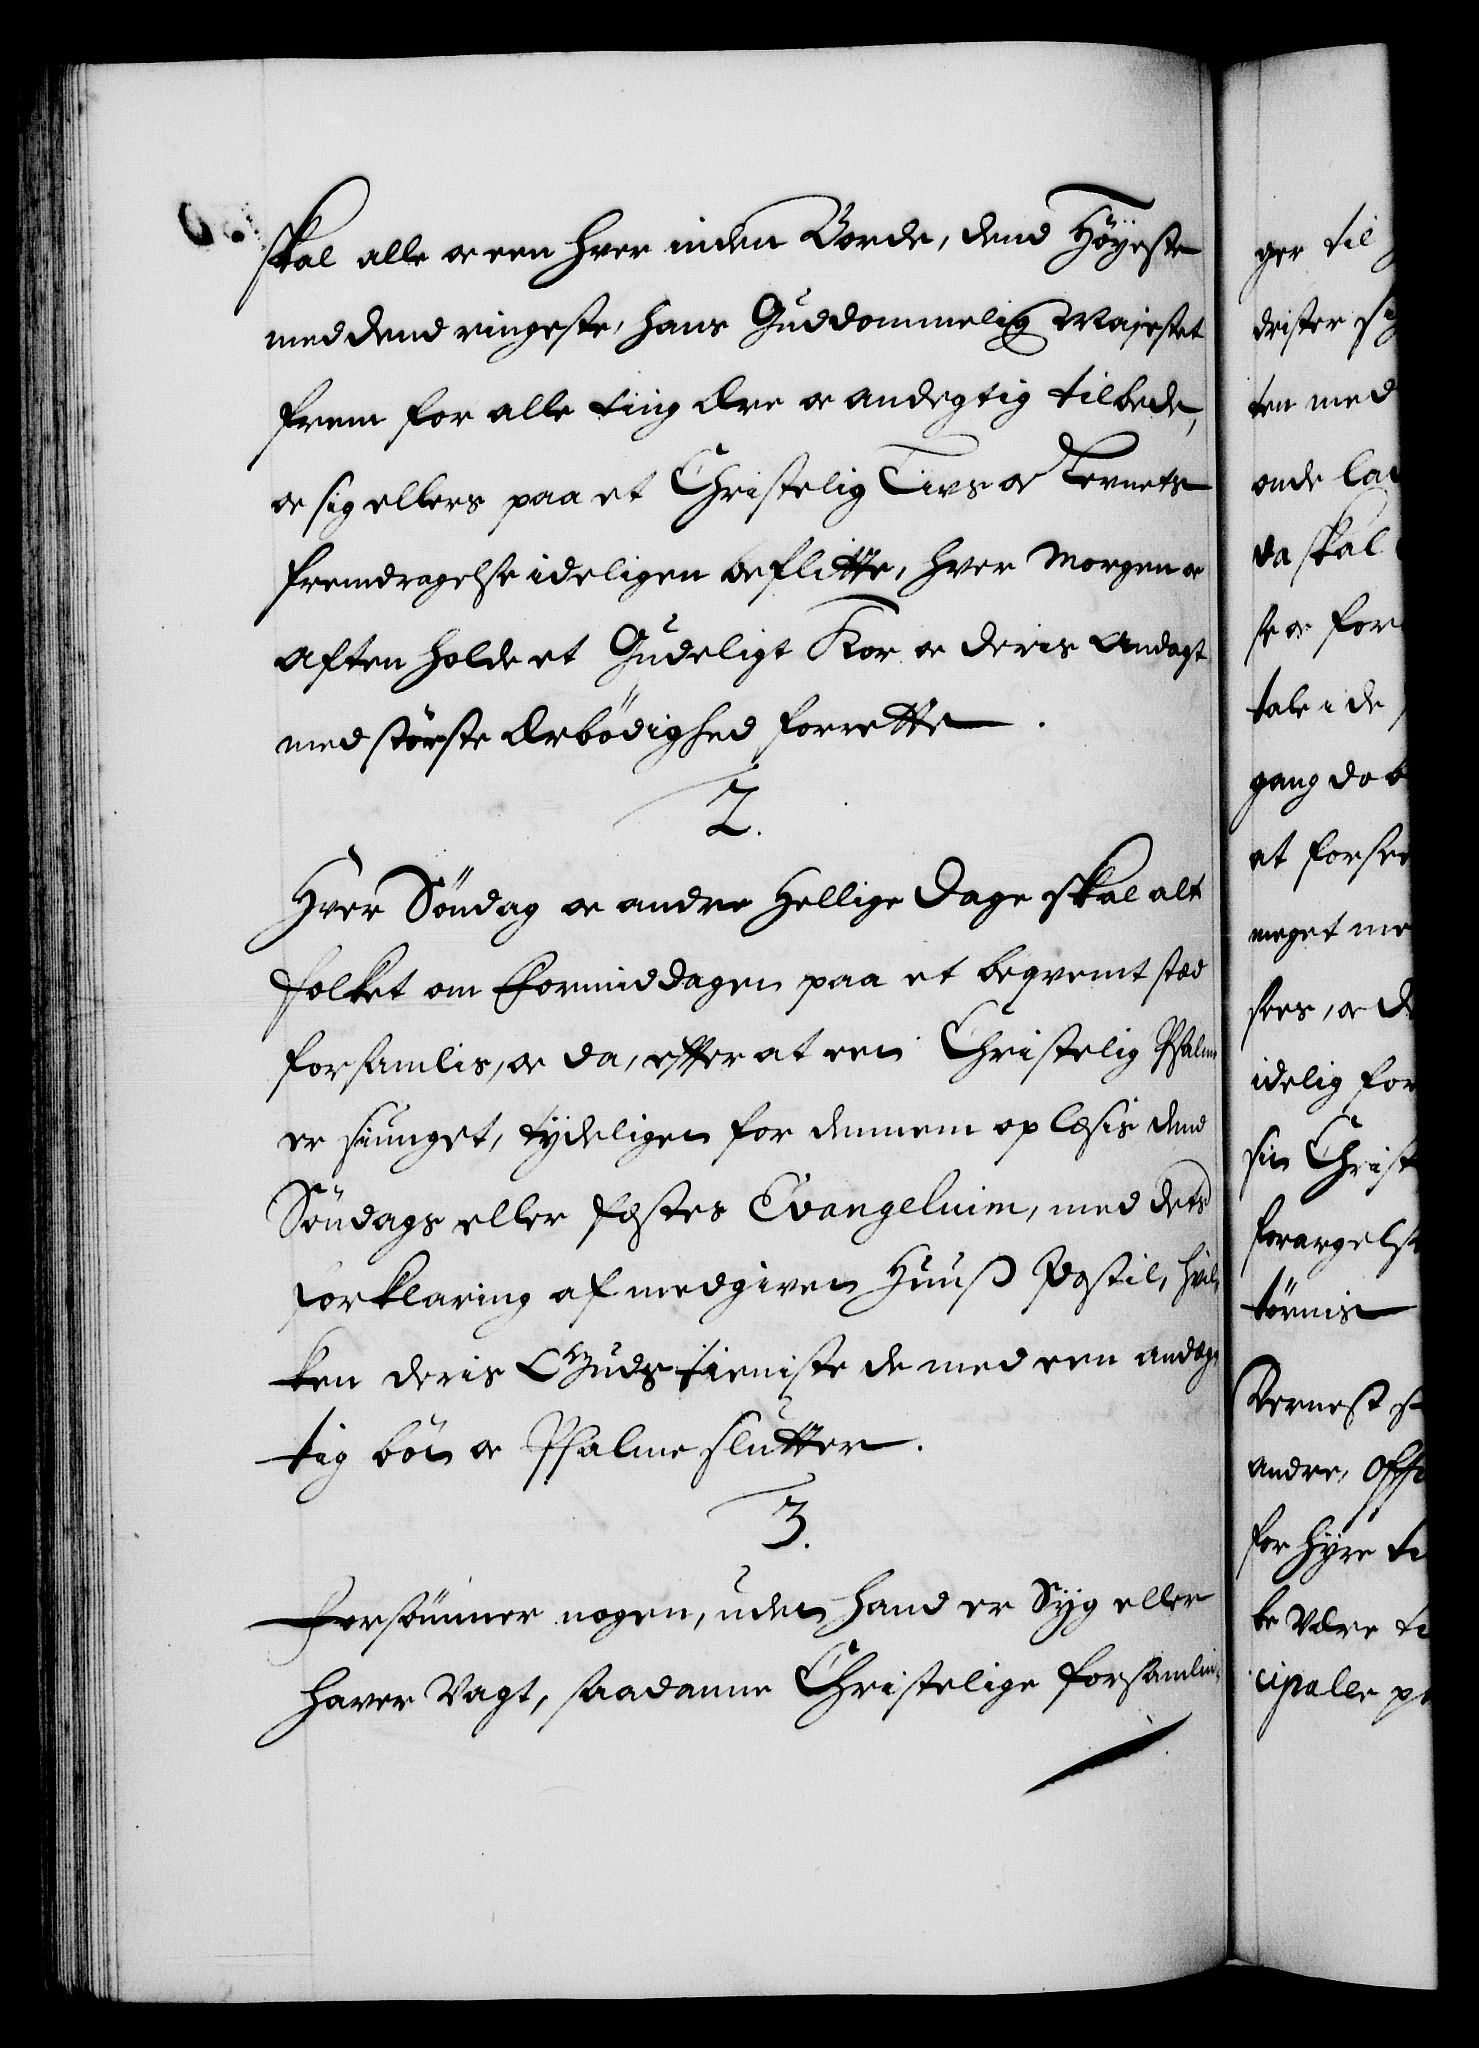 skal alle oc een hver inden Borde, dend Höyeste
med dend ringeste, hans Guddommelig Majestet
frem for alle ting ære oc andegtig tilbede,
oc sig ellers paa et Christelig Livs oc Levnets
fremdragelse ideligen beflitte, hver Morgen oc
aften holde et Gudeligt Kor oc deris Andagt
med störste ærbödighed forrette.
2.
Hver Söndag oc andre Hellige Dage skal alt
folket om Formiddagen paa et beqvemt stæd
forsamlis, oc da, efter at een Christelig Psalme
er siunget, tydeligen for dennem oplæsis dend
Söndags eller festes Evangelium, med dets
forklaring af medgiven Huuß Postil, hvil-
ken deris Guds tieniste de med een andæg-
tig bön oc Psalme slutter.
3.
Forsömmer nogen, uden hand er Syg eller
haver Vagt, saadanne Christelige forsamlin-
ger til
drister sig
ten med
onde lad
da skal
se oc for
tale i de
gang do
at forsee
meget me
sees, oc d
idelig for
sin Christ
forargelse
törnis
Dernest s
andre, Offi
for hyre ti
ke være ti
cipalle p